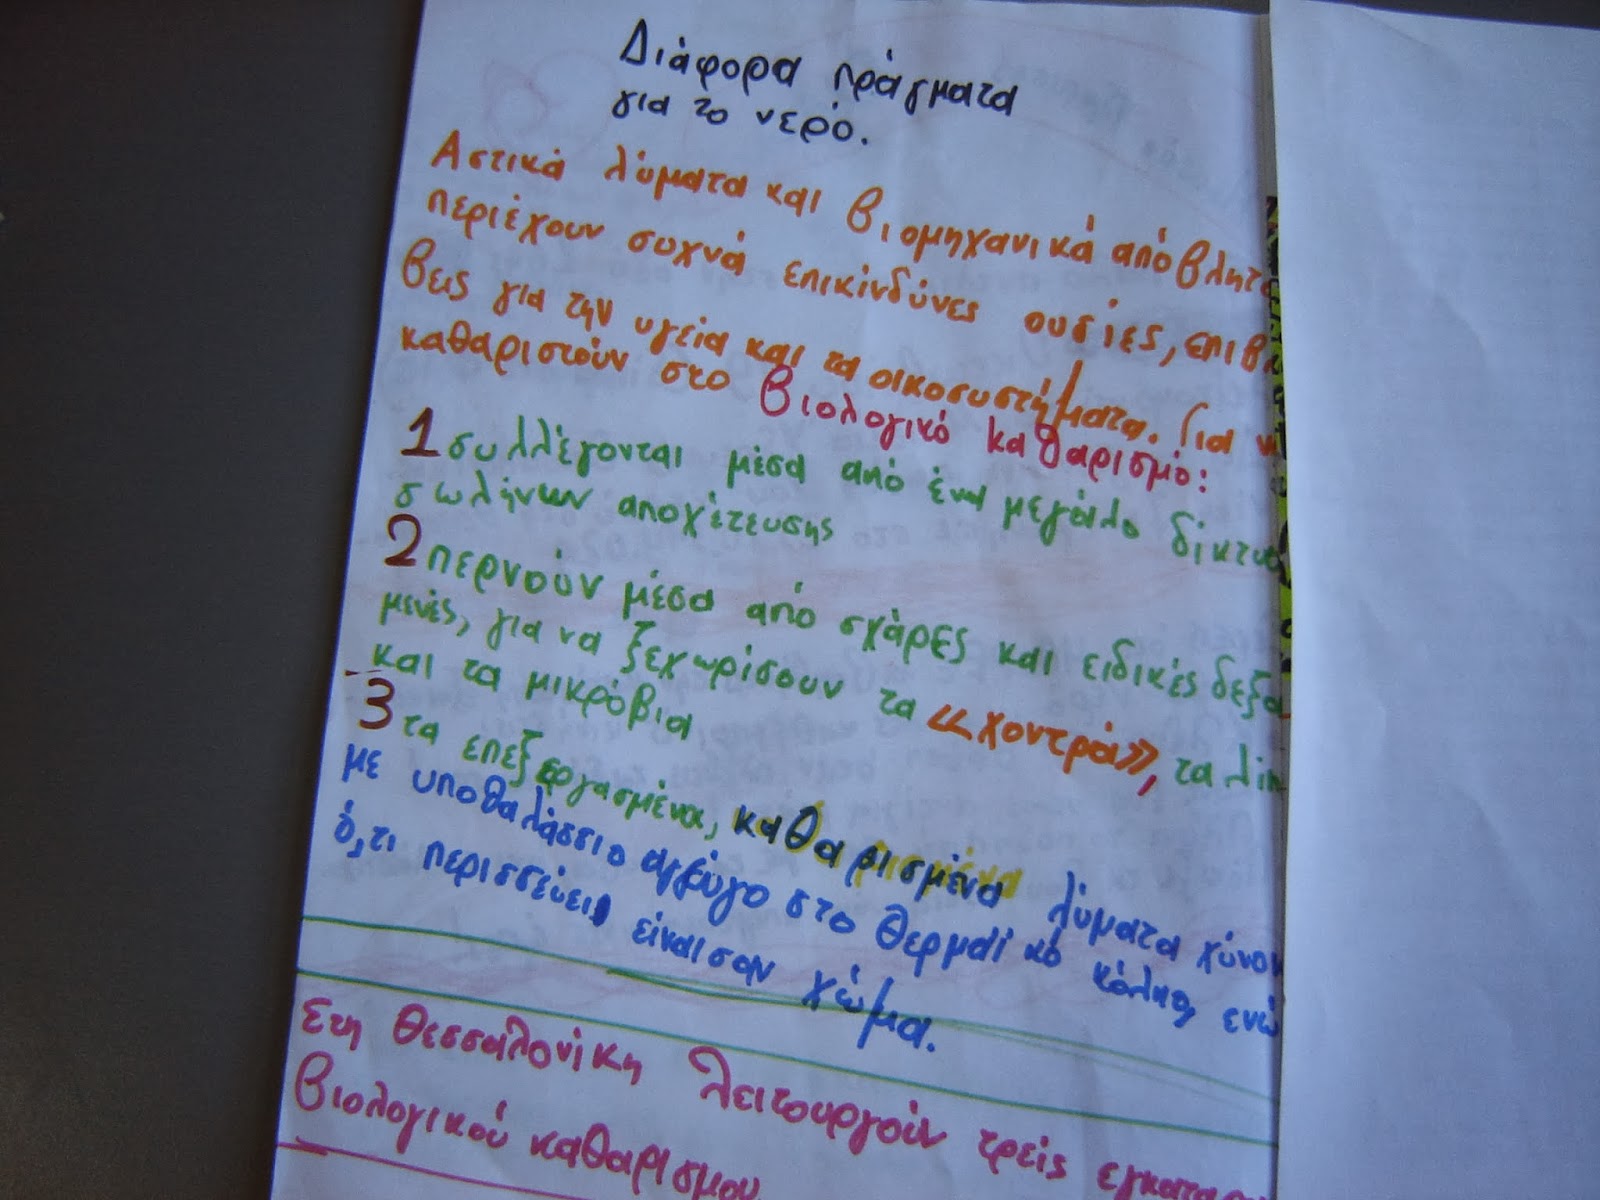 Διάφορα πράγματα
για το νερό.
Αστικά λύματα και βιομηχανικά απόβλητα
περιέχουν συχνά επικίνδύνες ουσίες, επιβλ
βεις για την υγεία και τα οικοσυστήματα. Για ν
καθαριστούν στο βιολογικό καθαρισμό:
1 συλλέγονται μέσα από ένα μεγάλο δίκτυο
σωλήνων αποχέτευσης
2 περνούν μέσα από σχάρες και ειδικές δεξα
μενές, για να ξεχωρίσουν τα «χοντρά», τα λίπη
και τα μικρόβια
3 τα επεξεργασμένα, καθαρισμένα λύματα χύνον
με υποθαλάσσιο αγωγό στο Θερμαϊκό κόλπο, ενώ
ό,τι περισσεύει είναι σαν χώμα.
Στη Θεσσαλονίκη λειτουργούν τρείς εγκατασ
βιολογικού καθαρισμού